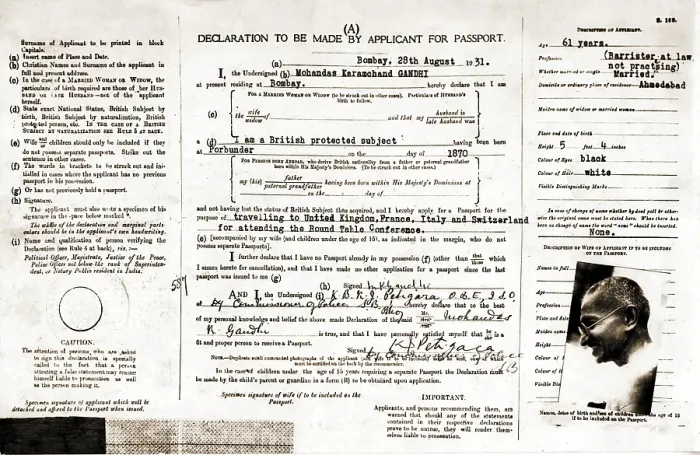 Surname of Applicant to be printed in block
Capitals.
(a) Insert name of Place and Date.
(b) Christian Names and Surname of the applicant in
full and present address.
(c) In the case of a MARRIED WOMAN or WIDOW, the
particulars of birth required are those of HER HUS-
BAND OR LATE HUSBAND—not of the applicant
herself.
(d) State exact National Status, British Subject by
birth, British Subject by naturalization, British
protected person, etc. IN THE CASE OF A BRITISH
SUBJECT BY NATURALIZATION SEE RULE 5 AT BACK.
(e) Wife and children should only be included if they
do not possess separate passports. Strike out the
sentence in other cases.
(f) The words in brackets to be struck out and ini-
tialled in cases where the applicant has no previous
passport in his possession.
(g) Or has not previously held a passport.
(h) Signature.
The applicant must also write a specimen of his
signature in the space below marked *.
The whole of the declaration and marginal parti-
culars should be in the applicant's own handwriting.
(i) Name and qualification of person verifying the
Declaration (see Rule 4 at back), viz.:—
Political Officer, Magistrate, Justice of the Peace,
Police Officer not below the rank of Superinten-
dent, or Notary Public resident in India.
CAUTION.
The attention of persons who are asked
to sign this declaration is specially
called to the fact that a person
attesting a false statement may render
himself liable to prosecution as well
as the person making it.
Specimen signature of applicant which will be
detached and affixed to the Passport when issued.
(A)
DECLARATION TO BE MADE BY APPLICANT FOR PASSPORT.
(a) Bombay, 28th August 1931.
I, the Undersigned (b) Mohandas Karamchand GANDHI
at present residing at Bombay. hereby declare that I am
FOR A MARRIED WOMAN OR WIDOW (to be struck out in other cases). Particulars of HUSBAND'S
birth to follow.
(c) the wife widow and that my husband is late husband was
a (d) I am a British protected subject having been born
at Porbunder on the day of 1870
FOR PERSONS BORN ABROAD, who derive British nationality from a father or paternal grandfather
born within His Majesty's Dominions. (To be struck out in other cases.)
my (his) father paternal grandfather having been born within His Majesty's Dominions at
on the day of
and not having lost the status of British Subject thus acquired, and I hereby apply for a Passport for the
purpose of travelling to United Kingdom, France, Italy and Switzerland
for attending the Round Table Conference.
(e) [accompanied by my wife (and children under the age of 15), as indicated in the margin, who do not
possess separate Passports].
I further declare that I have no Passport already in my possession (f) (other than that those which
I annex hereto for cancellation), and that I have made no other application for a passport since the last
passport was issued to me (g)
(h) Signed MKGandhi
AND I, the Undersigned (i) K. B. R. J. Petigara O.B.E, I.S.O,
Dy Commissioner of Police S.B. hereby declare that to the best
of my personal knowledge and belief the above made Declaration of the said Mr. Mohandas
K. Gandhi is true, and that I have personally satisfied myself that he she is a
fit and proper person to receive a Passport.
Signed K J Petigara
Dy Commissioner of Police
SB
NOTE.—Duplicate small unmounted photographs of the applicant
must be certified on the back by the recommender.
In the case of children under the age of 15 years requiring a separate Passport the Declaration must
be made by the child's parent or guardian in a form (B) to be obtained upon application.
Specimen signature of wife if to be included on the
Passport.
IMPORTANT.
Applicants, and persons recommending them, are
warned that should any of the statements
contained in their respective declarations
prove to be untrue, they will render them-
selves liable to prosecution.
DESCRIPTION OF APPLICANT.
Age 61 years.
Profession (Barrister at law
not practising)
Whether married or single Married.
Domicile or ordinary place of residence Ahmedabad
Maiden name of widow or married woman
Place and date of birth
Height 5 feet 4 inches
Colour of Eyes black
Colour of Hair white
Visible Distinguishing Marks
In case of change of name whether by deed poll or other-
wise the original name must be stated here. When there has
been no change of name the word "none" should be inserted.
None.
DESCRIPTION OF WIFE OF APPLICANT IF TO BE INCLUDED
ON THE PASSPORT.
Names in full
Age
Profession
Place and date
Maiden name
Height
Colour of
Colour of
Visible Di
Names, dates of birth and sex of children under the age of 15
if to be included on the Passport.